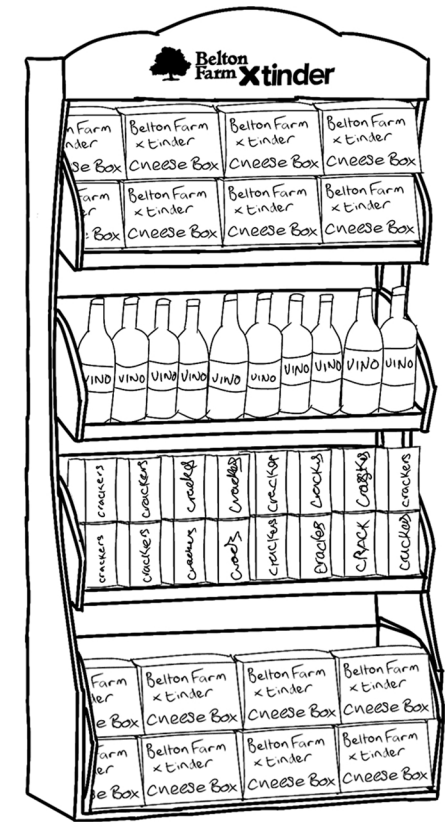 Belton
Farm xtinder
n Farm
nder
se Box
Belton Farm
x tinder
Cheese Box
Belton Farm
x tinder
Cheese Box
Belton Farm
x tinder
Cheese Box
Farm
er
: Box
Belton Farm
x tinder
Cheese Box
Belton Farm
x tinder
Cheese Box
Belton Farm
x tinder
Cheese Box
VINO VINO VINO VINO VINO VINO VINO VINO VINO VINO
crackers crackers crackers cracker crackers
crackers crackers crackers crackers cracles CRACK
Farm
er
e Box
Belton Farm
x tinder
Cheese Box
Belton Farm
x tinder
Cheese Box
Belton Farm
x tinder
Cheese Box
arm
er
e Box
Belton Farm
x tinder
Cheese Box
Belton Farm
x tinder
Cheese Box
Belton Farm
x tinder
Cheese Box